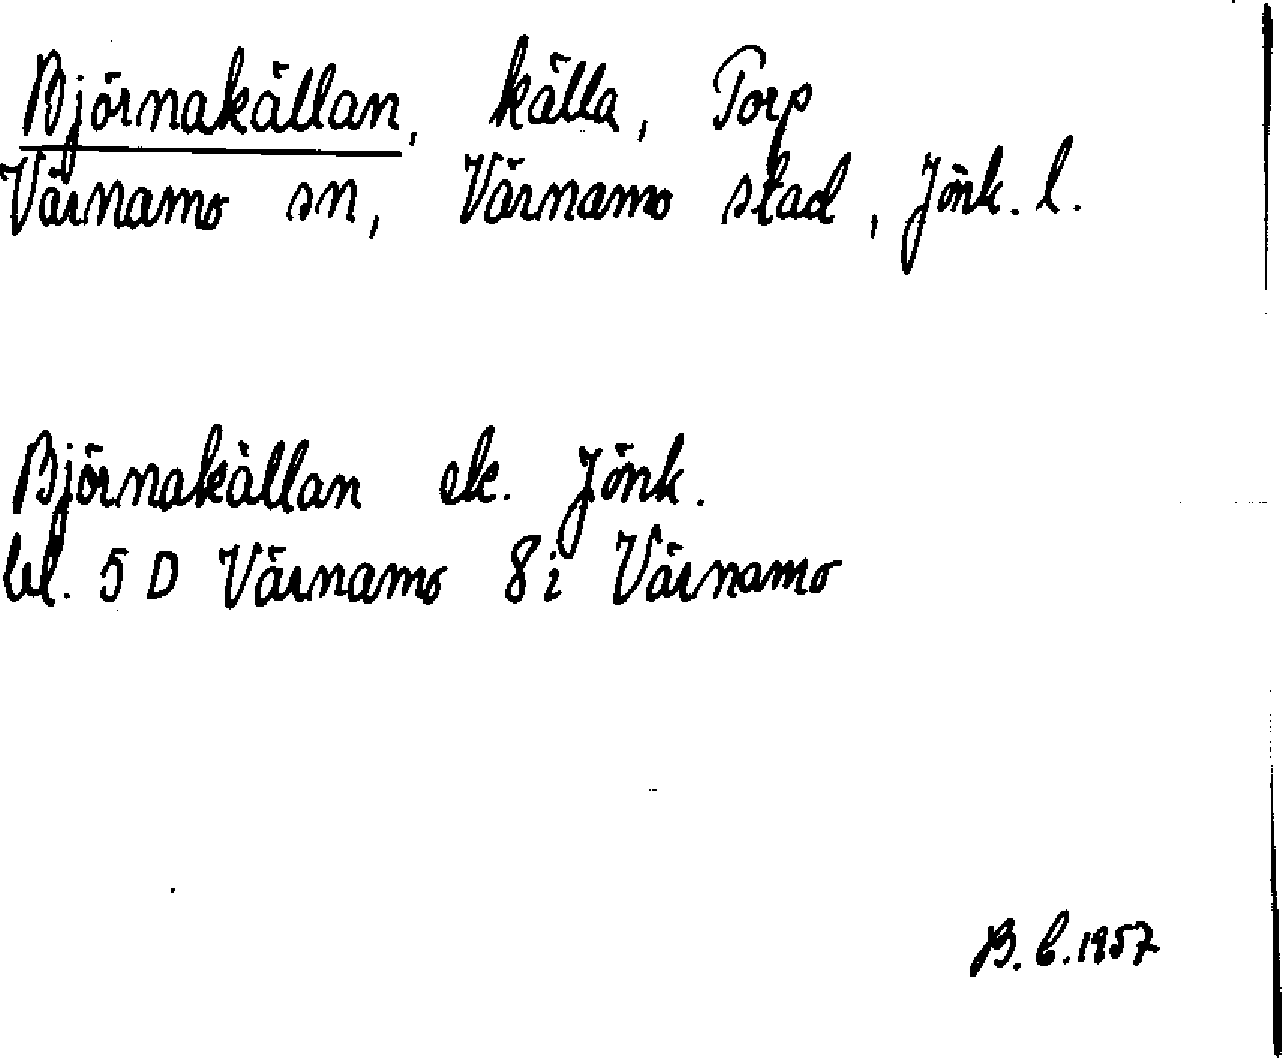 Björnakällan, källa, Torp
Värnamo sn, Värnamo stad, Jönk. l.
Björnakällan ek. Jönk.
bl. 5 D Värnamo 8i Värnamo
B. C. 1957